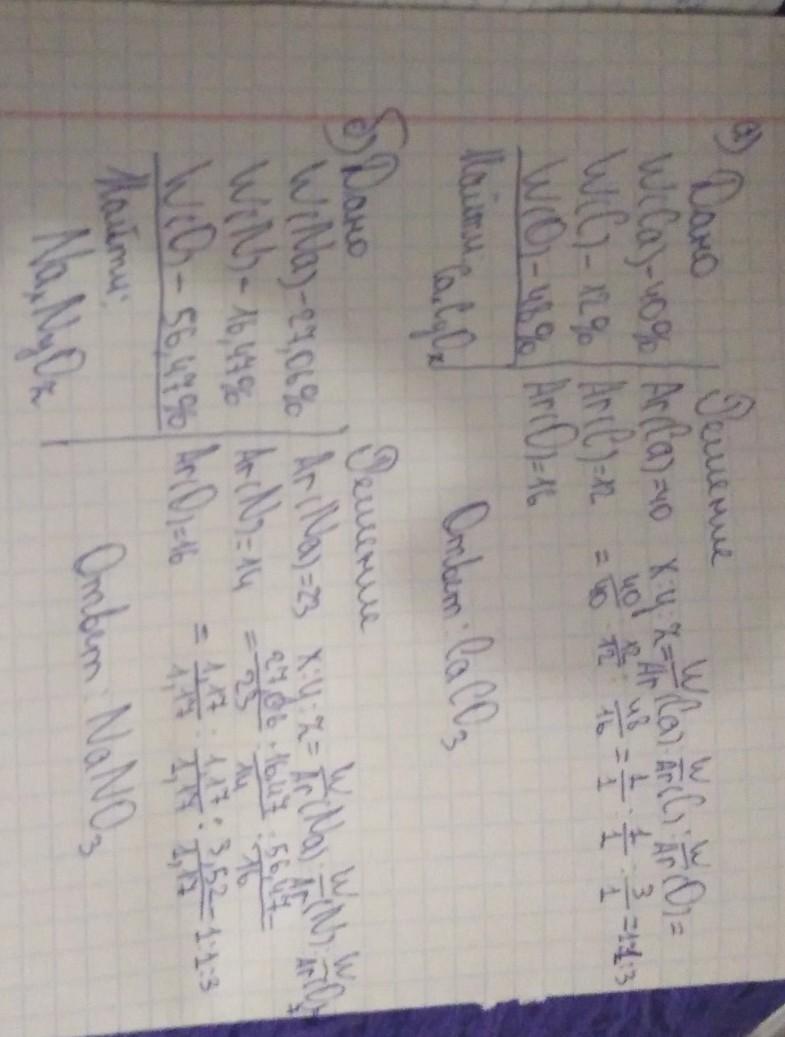 а) Дано
W(Ca)-40%
W(C)-12%
W(O)-48%
Найти:
CaxCyOz
Решение
Ar(Ca)=40 x:y:z= W/Ar(Ca) : W/Ar(C) : W/Ar(O) =
Ar(C)=12 = 40/40 : 12/12 : 48/16 = 1/1 : 1/1 : 3/1 =1:1:3
Ar(O)=16
Ответ: CaCO3
б) Дано
W(Na)-27,06%
W(N)-16,47%
W(O)-56,47%
Найти:
NaxNyOz
Решение
Ar(Na)=23 x:y:z= W/Ar(Na) : W/Ar(N) : W/Ar(O) =
Ar(N)=14 = 27,06/23 : 16,47/14 : 56,47/16
Ar(O)=16 = 1,17/1,17 : 1,17/1,17 : 3,52/1,17 =1:1:3
Ответ: NaNO3